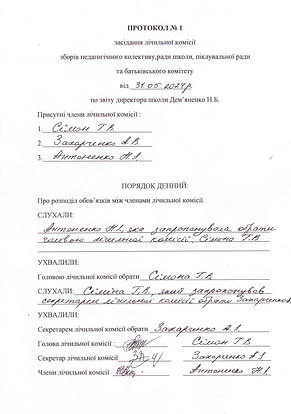 ПРОТОКОЛ № 1
засідання лічильної комісії
зборів педагогічного колективу,ради школи, піклувальної ради
та батьківського комітету
від 31.05.2024р.
по звіту директора школи Дем’яненко Н.Б.
Присутні члени лічильної комісії :
1. Сімон Т.В.
2. Захарченко А.В.
3. Антоненко Н.І.
ПОРЯДОК ДЕННИЙ:
Про розподіл обов’язків між членами лічильної комісії.
СЛУХАЛИ:
Антоненко Н.І., яка запропонувала обрати
головою лічильної комісії, Сімона Т.В.
УХВАЛИЛИ:
Головою лічильної комісії обрати Сімона Т.В.
СЛУХАЛИ: Т.В. який запропонував
секретарем лічильної комісії обрати Захарченко
УХВАЛИЛИ:
Секретарем лічильної комісії обрати Захарченко А.
Голова лічильної комісії : Сімон Т.В.
Секретар лічильної комісії Захарченко А
Члени лічильної комісії Антоненко Н.І.